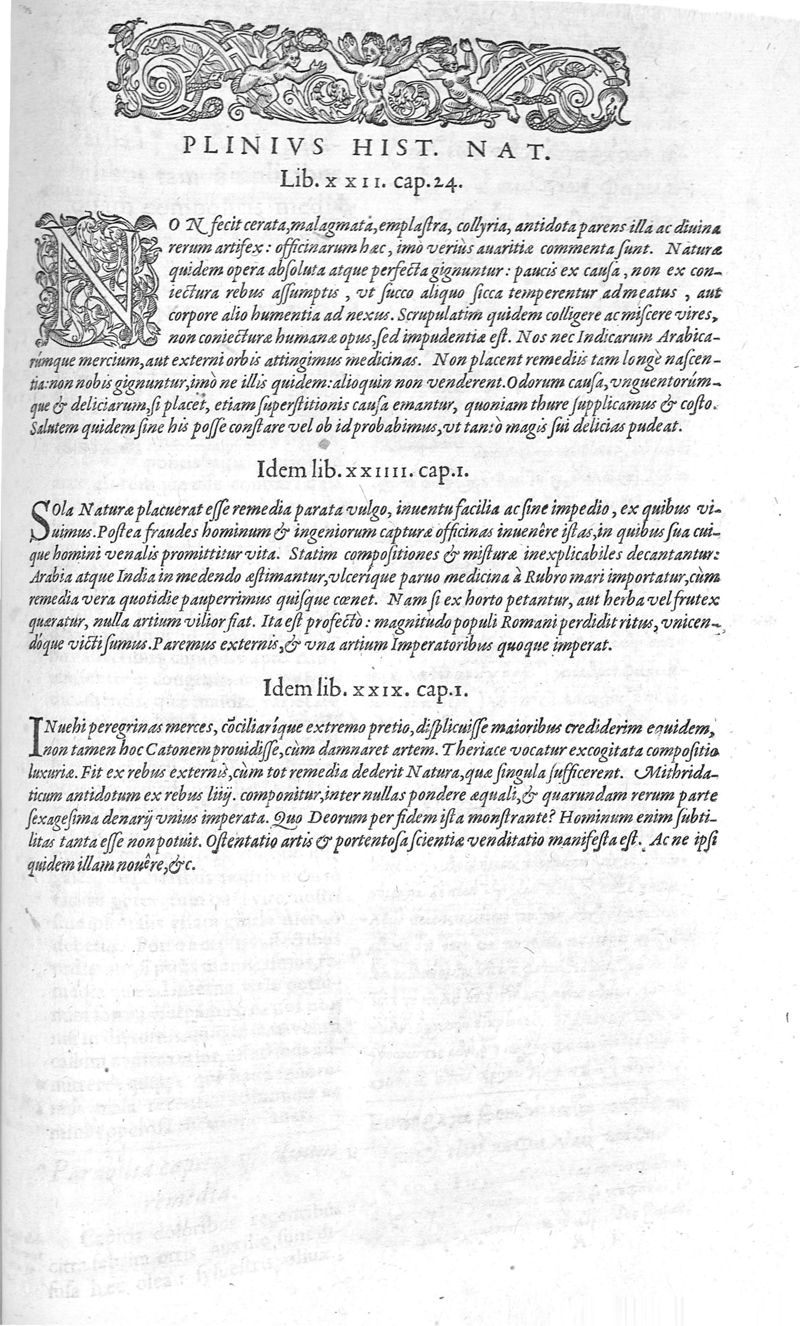 PLINIVS HIST. NAT.
Lib. XXII. cap. 24.
NON fecit cerata, malagmata, emplaſtra, collyria, antidota parens illa ac diuina
rerum artifex: officinarum hæc, imò veriùs auaritiæ commenta ſunt. Naturæ
quidem opera abſoluta atque perfecta gignuntur: paucis ex cauſa, non ex con-
iectura rebus aſſumptis, vt ſucco aliquo ſicca temperentur ad meatus, aut
corpore alio humentia ad nexus. Scrupulatim quidem colligere ac miſcere vires,
non coniecturæ humanæ opus, ſed impudentiæ eſt. Nos nec Indicarum Arabica-
rúmque mercium, aut externi orbis attingimus medicinas. Non placent remediis tam longè naſcen-
tia: non nobis gignuntur, imò ne illis quidem: alioquin non venderent. Odorum cauſa, vnguentorúm-
que & deliciarum, ſi placet, etiam ſuperſtitionis cauſa emantur, quoniam thure ſupplicamus & coſto.
Salutem quidem ſine his poſſe conſtare vel ob id probabimus, vt tantò magis ſui delicias pudeat.
Idem lib. XXIIII. cap. I.
SOla Naturæ placuerat eſſe remedia parata vulgo, inuentu facilia ac ſine impedio, ex quibus vi-
uimus. Poſtea fraudes hominum & ingeniorum capturæ officinas inuenêre iſtas, in quibus ſua cui-
que homini venalis promittitur vita. Statim compoſitiones & miſturæ inexplicabiles decantantur:
Arabia atque India in medendo æſtimantur, vlceríque paruo medicina à Rubro mari importatur, cùm
remedia vera quotidie pauperrimus quiſque cœnet. Nam ſi ex horto petantur, aut herba vel frutex
quæratur, nulla artium vilior fiat. Ita eſt profectò: magnitudo populi Romani perdidit ritus, vincen-
dóque victi ſumus. Paremus externis, & vna artium Imperatoribus quoque imperat.
Idem lib. XXIX. cap. I.
INuehi peregrinas merces, cōciliaríque extremo pretio, diſplicuiſſe maioribus crediderim equidem,
non tamen hoc Catonem prouidiſſe, cùm damnaret artem. Theriace vocatur excogitata compoſitio
luxuriæ. Fit ex rebus externis, cùm tot remedia dederit Natura, quæ ſingula ſufficerent. Mithrida-
ticum antidotum ex rebus liiij. componitur, inter nullas pondere æquali, & quarundam rerum parte
ſexageſima denarij vnius imperata. Quo Deorum per fidem iſta monſtrante? Hominum enim ſubti-
litas tanta eſſe non potuit. Oſtentatio artis & portentoſa ſcientiæ venditatio manifeſta eſt. Ac ne ipſi
quidem illam nouêre, &c.